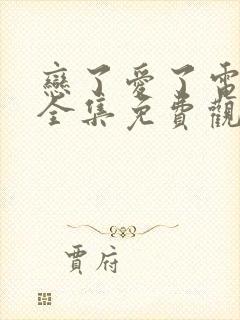 戀了愛了電
全集免費觀
賈府